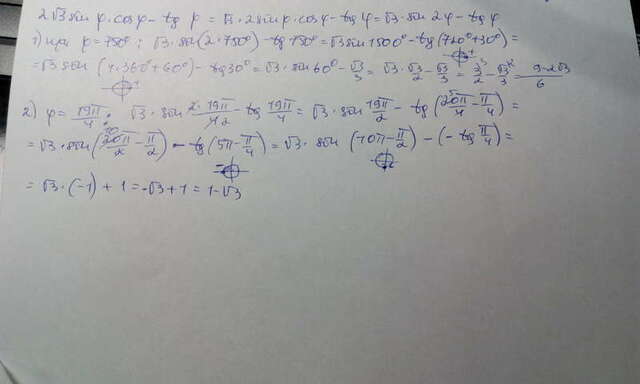 2√3 sin φ · cos φ − tg φ = √3 · 2 sin φ · cos φ − tg φ = √3 · sin 2φ − tg φ
1) при φ = 750° : √3 · sin(2 · 750°) − tg 750° = √3 sin 1500° − tg(720° + 30°) =
= √3 sin (4 · 360° + 60°) − tg 30° = √3 · sin 60° − √3/3 = √3 · √3/2 − √3/3 = 3/2 − √3/3 = (9 − 2√3)/6
2) φ = 19π/4 : √3 · sin 2 · 19π/42 − tg 19π/4 = √3 · sin 19π/2 − tg (20π/4 − π/4) =
= √3 · sin (20π/2 − π/2) − tg (5π − π/4) = √3 · sin (10π − π/2) − (− tg π/4) =
= √3 · (−1) + 1 = −√3 + 1 = 1 − √3